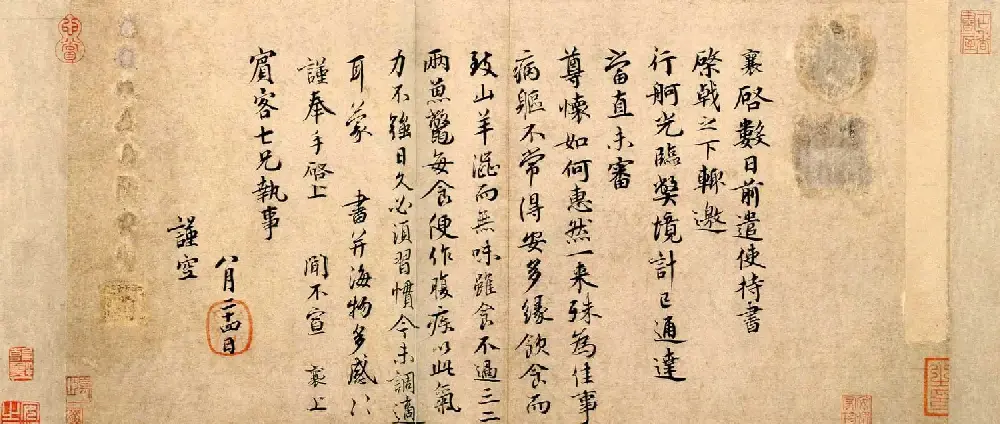 襄啓數日前遣使持書
棨戟之下輙邀
行舸光臨弊境計已通達
當直未審
尊懷如何惠然一来殊為佳事
病軀不常得安多縁飲食而
致山羊澁而無味雖食不過三二
兩魚鱉每食便作腹疾以此氣
力不強日久必須習慣今未調適
耳蒙 書并海物多感〻
謹奉手啓上 聞不宣 襄上
賔客七兄執事
八月二十四日
謹空